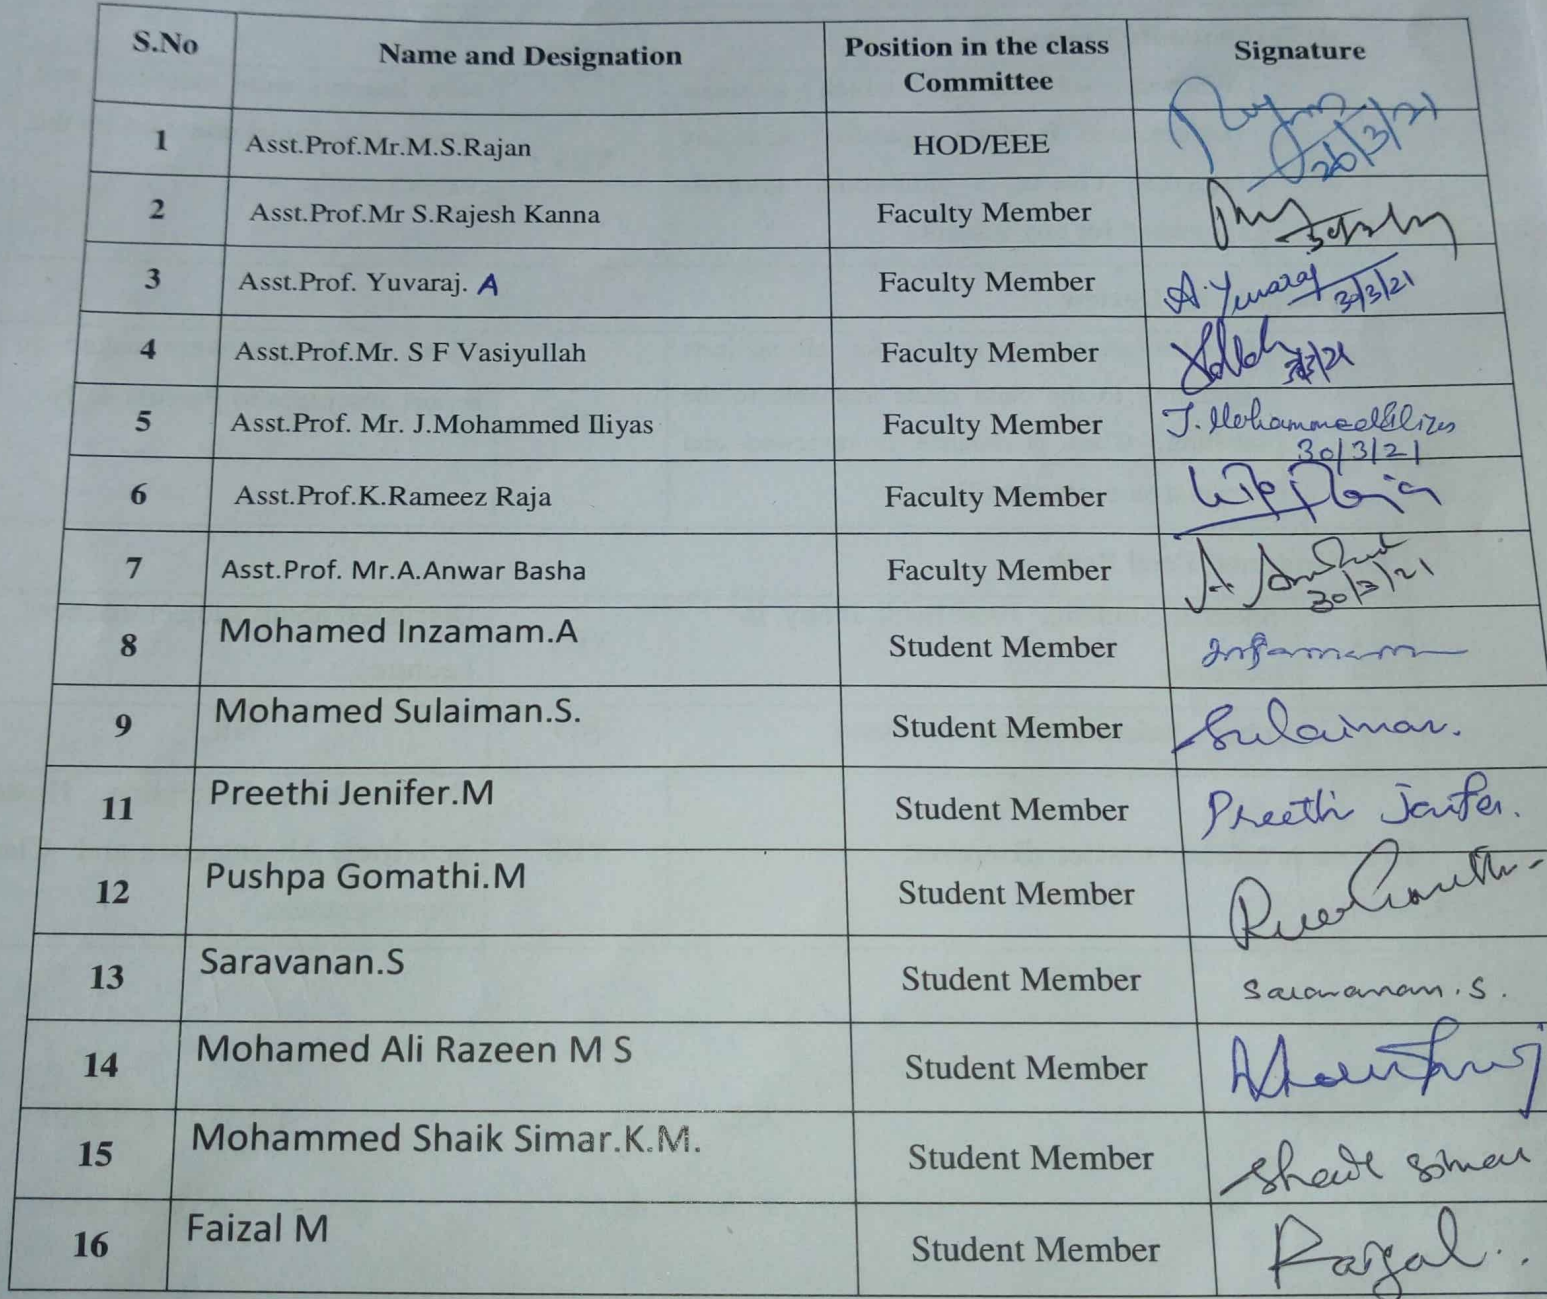 S.No Name and Designation Position in the class Committee Signature
1 Asst.Prof.Mr.M.S.Rajan HOD/EEE 26/3/21
2 Asst.Prof.Mr S.Rajesh Kanna Faculty Member
3 Asst.Prof. Yuvaraj. A Faculty Member A. Yuvaraj 30/3/21
4 Asst.Prof.Mr. S F Vasiyullah Faculty Member
5 Asst.Prof. Mr. J.Mohammed Iliyas Faculty Member J. Mohammed 30/3/21
6 Asst.Prof.K.Rameez Raja Faculty Member Raja
7 Asst.Prof. Mr.A.Anwar Basha Faculty Member 30/3/21
8 Mohamed Inzamam.A Student Member Inzamam
9 Mohamed Sulaiman.S. Student Member Sulaiman.
11 Preethi Jenifer.M Student Member Preethi Jenifer.
12 Pushpa Gomathi.M Student Member
13 Saravanan.S Student Member Saravanan.S.
14 Mohamed Ali Razeen M S Student Member
15 Mohammed Shaik Simar.K.M. Student Member Shaik Simar
16 Faizal M Student Member Faizal..